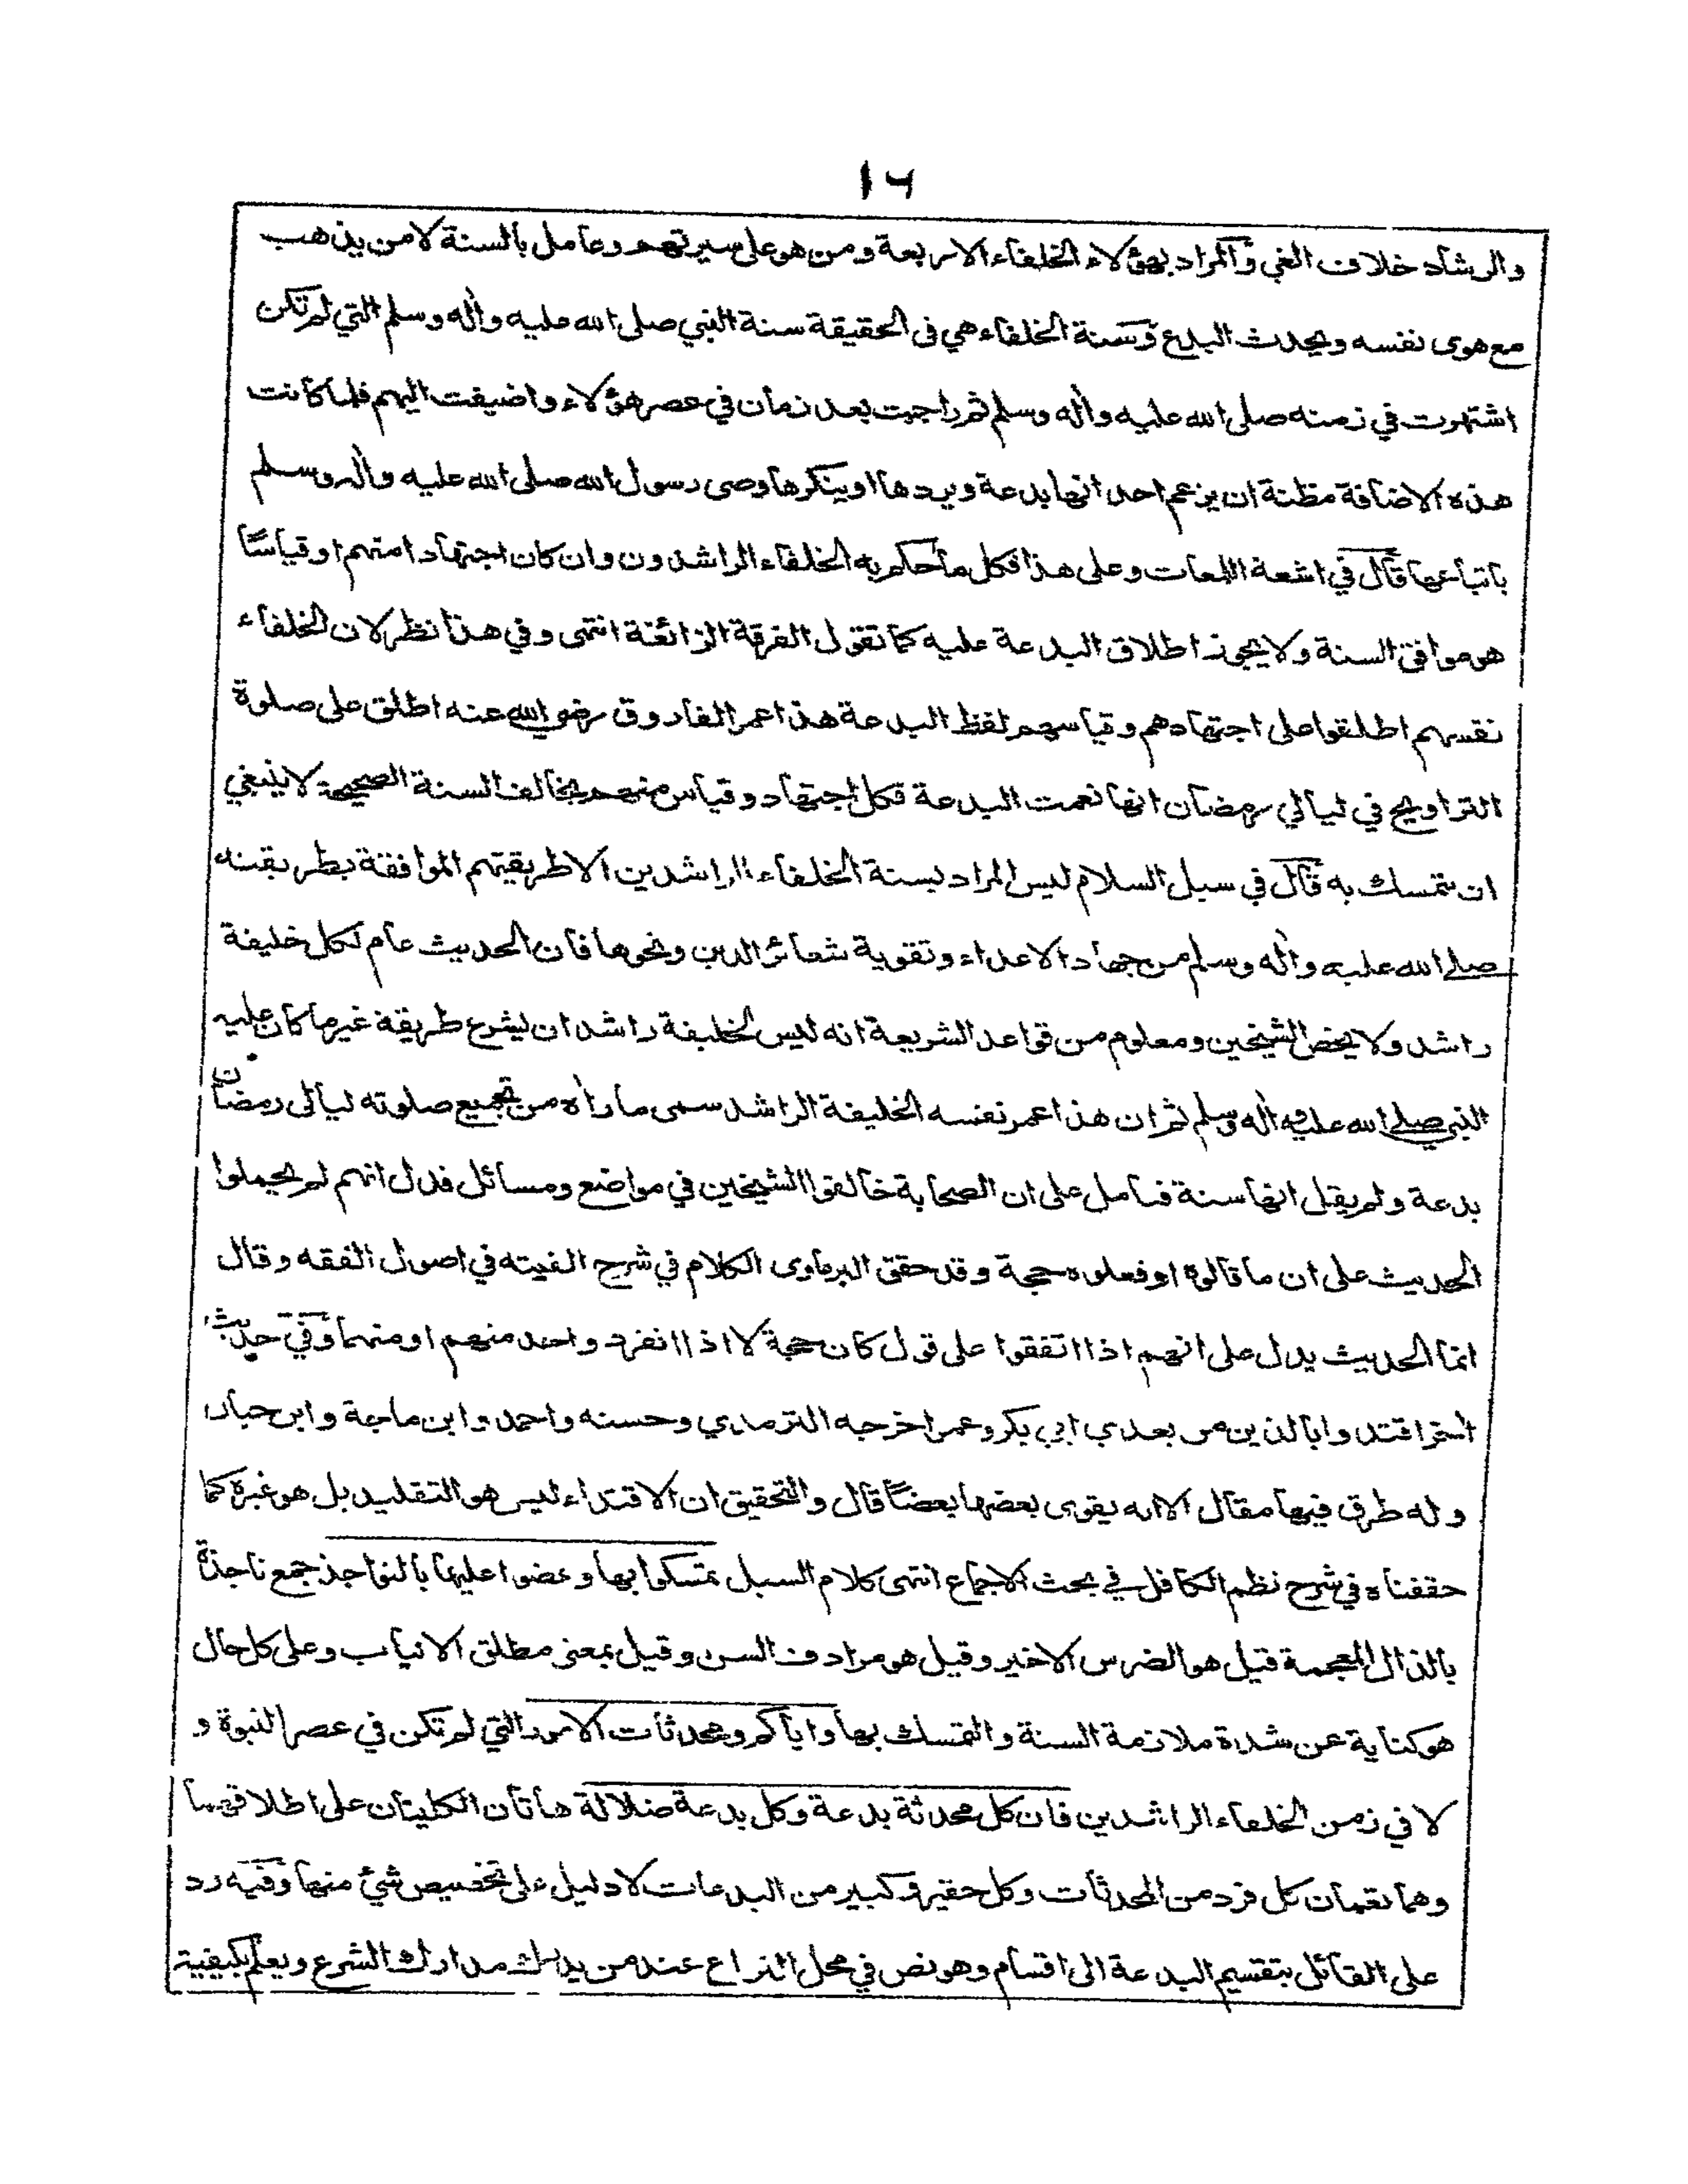 ١٦
والرشاد خلاف الغي والمراد بهؤلاء الخلفاء الاربعة ومن هو على سيرتهم وعامل بالسنة لا من يذهب
مع هوى نفسه ويحدث البدع وسنة الخلفاء هي في الحقيقة سنة النبي صلى الله عليه واٰله وسلم التي لم تكن
اشتهرت في زمنه صلى الله عليه واٰله وسلم ثم راجت بعد زمان في عصر هؤلاء واضيفت اليهم فلما كانت
هذه الاضافة مظنة ان يزعم احد انها بدعة ويردها او ينكرها وصى رسول الله صلى الله عليه واٰله وسلم
باتباعها قال في اشعة اللمعات وعلى هذا فكل ما حكم به الخلفاء الراشدون وان كان اجتهادا منهم او قياسًا
هو موافق السنة ولا يجوز اطلاق البدعة عليه كما تقول الفرقة الزائغة انتهى وفي هذا نظر لان الخلفاء
نفسهم اطلقوا على اجتهادهم وقياسهم لفظ البدعة هذا عمر الفاروق رضي الله عنه اطلق على صلوة
التراويح في ليالي رمضان انها نعمت البدعة فكل اجتهاد وقياس منهم يخالف السنة الصحيحة لا ينبغي
ان يتمسك به قال في سبل السلام ليس المراد بسنة الخلفاء الراشدين الا طريقتهم الموافقة بطريقته
صلى الله عليه واٰله وسلم من جهاد الاعداء وتقوية شعائر الدين ونحوها فان الحديث عام لكل خليفة
راشد ولا يخص الشيخين ومعلوم من قواعد الشريعة انه ليس لخليفة راشد ان يشرع طريقة غير ما كان عليه
النبي صلى الله عليه واٰله وسلم ثم ان هذا عمر نفسه الخليفة الراشد سمى ما راٰه من تجميع صلوته ليالى رمضان
بدعة ولم يقل انها سنة فتامل على ان الصحابة خالفوا الشيخين في مواضع ومسائل فدل انهم لم يحملوا
الحديث على ان ما قالوه او فعلوه حجة وقد حقق البرماوى الكلام في شرح الفيته في اصول الفقه وقال
انما الحديث يدل على انهم اذا اتفقوا على قول كان حجة لا اذا انفرد واحد منهم او منهما وفي حديث
اٰخر اقتدوا بالذين من بعدي ابي بكر وعمر اخرجه الترمذي وحسنه واحمد وابن ماجة وابن حبان
وله طرق فيها مقال الا انه يقوى بعضها بعضًا قال والتحقيق ان الاقتداء ليس هو التقليد بل هو غيره كما
حققناه في شرح نظم الكافل في بحث الاجماع انتهى كلام السبل تمسكوا بها وعضوا عليها بالنواجذ جمع ناجذة
بالذال المعجمة قيل هو الضرس الاخير وقيل هو مرادف السن وقيل بمعنى مطلق الانياب وعلى كل حال
هو كناية عن شدة ملازمة السنة والتمسك بها واياكم ومحدثات الامور التي لم تكن في عصر النبوة و
لا في زمن الخلفاء الراشدين فان كل محدثة بدعة وكل بدعة ضلالة هاتان الكليتان على اطلاقهما
وهما تعمان كل فرد من المحدثات وكل حقير وكبير من البدعات لا دليل على تخصيص شئ منها وفيه رد
على القائل بتقسيم البدعة الى اقسام وهو نص في محل النزاع عند من يدرك مدارك الشرع ويعلم بكيفية